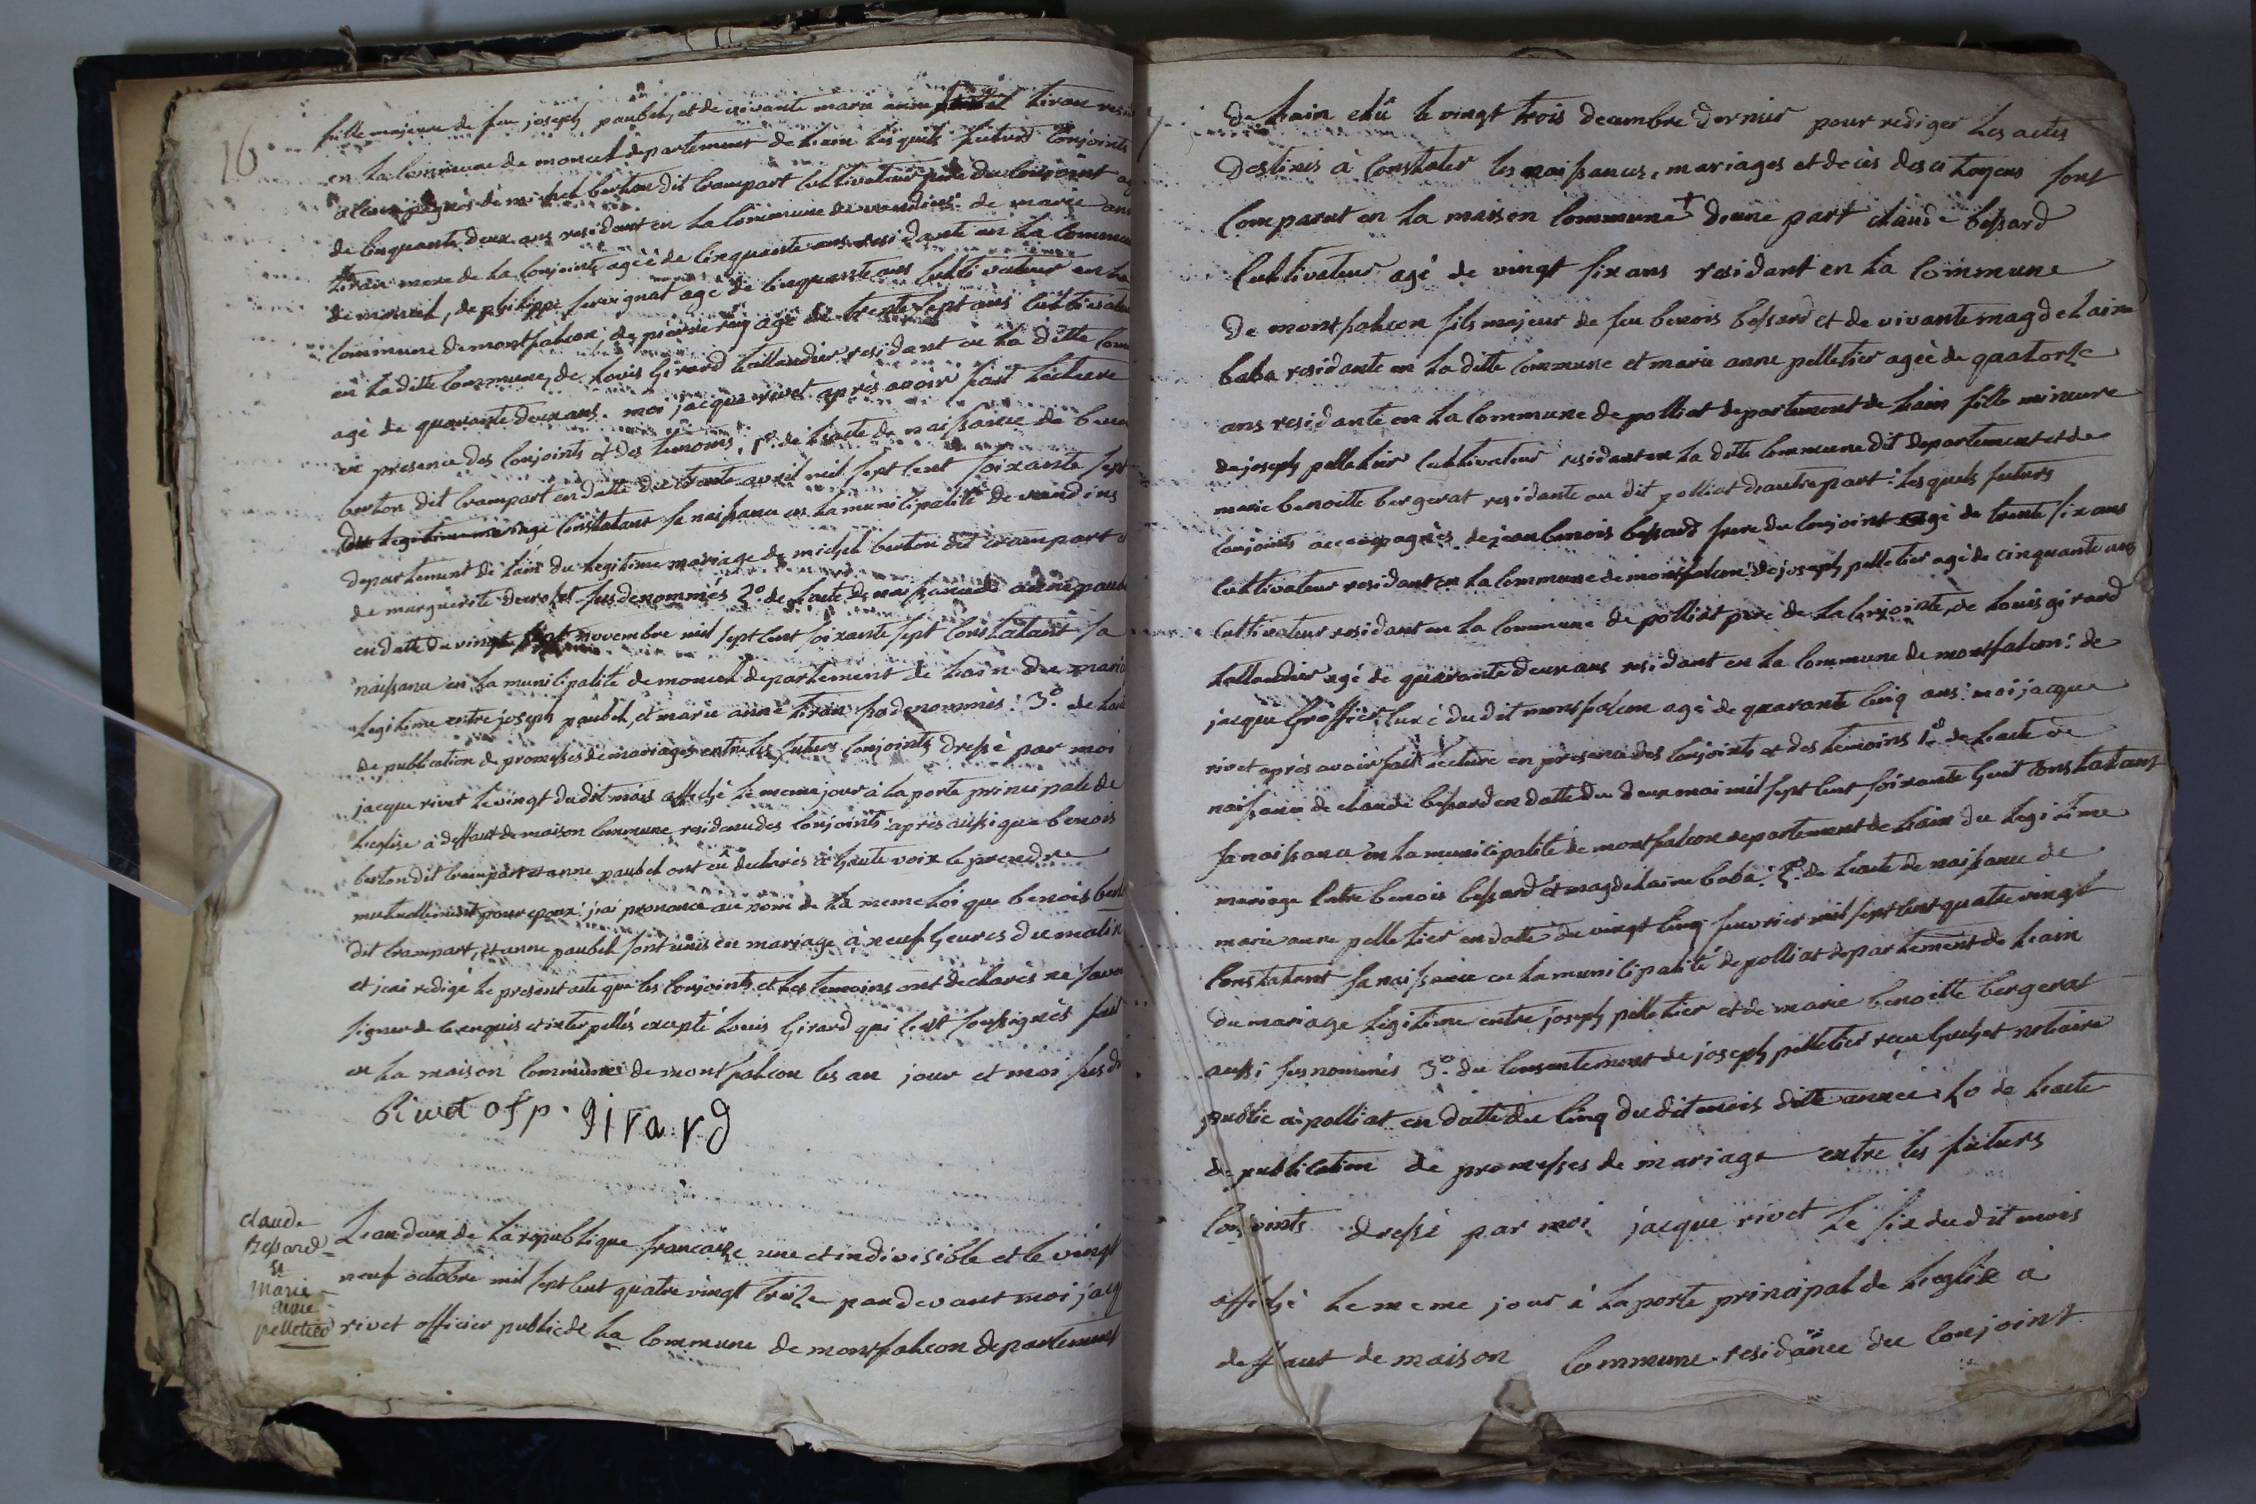 16
fille majeure de feu joseph paubel, et de vivante marie anne tiran
en la commune de moncel departement de lain lesquels futurs conjoints
acompagnés de michel berton dit crampart cultivateur pere du conjoint
de cinquante deux ans residant en la commune de vandeins de marie
tiran mere de la conjointe agèè de cinquante ans residante en la
de moncel, de philippe agé de cinquante ans cultivateur en la
commune de montfalcon, de agé de trente sept ans
en la ditte commune, de louis girard taillandier residant en la ditte
agé de quarante deux ans. moi jacque rivet après avoir fait lecture
en presence des conjoints et des temoins, 1º. de l'acte de naissance de
berton dit crampart en datte du trente avril mil sept cent soixante sept
constatant sa naissance en la municipalité de vandeins
departement de l'ain du legitime mariage de michel berton dit crampart
de marguerite susdenommés 2º. de l'acte de naissance de anne
en datte du vingt novembre mil sept cent soixante sept constatant sa
naissance en la municipalité de moncel departement de l'ain du
legitime entre joseph paubel, et marie anne tiran susdenommés: 3º. de
de publication de promesses de mariages entre les futurs conjoints dressé par moi
jacque rivet le vingt dudit mois affiché le meme jour à la porte principale de
l'eglise à deffaut de maison commune residence des conjoints: après aussi que benois
berton dit crampart et anne paubel ont eû declarès à haute voix se prendre
mutuellement pour epoux: j'ai prononcé au nom de la meme loi que benois
dit crampart, et anne paubel sont unis en mariage à neuf heures du matin
et j'ai redigé le present acte que les conjoints et les temoins ont declarès ne
signer de ce enquis et interpellés excepté louis girard qui s'est soussignès fait
en la maison commune de montfalcon les an jour et moi
Rivet ofp. girard
claude
bessard
et
marie
anne
pelletier
L'an deux de la republique francaise une et indivisible et le vingt
neuf octobre mil sept cent quatre vingt treize pardevant moi
rivet officier public de la commune de montfalcon departement
de lain elû le vingt trois decembre dernier pour rediger les actes
destinés à constater les naissances, mariages et decès des citoyens sont
comparut en la maison commune † d'une part claude bessard
cultivateur agé de vingt six ans residant en la commune
de montfalcon fils majeur de feu benois bessard et de vivante magdelaine
baba residante en la ditte commune et marie anne pelletier agèè de quatorze
ans residante en la commune de polliat departement de l'ain fille mineure
de joseph pelletier cultivateur residant en la ditte commune dit departement et de
marie benoitte bergerat residante au dit polliat d'autre part: lesquels futurs
conjoints accompagnès de jean benois bessard frere du conjoint agé de trente six ans
cultivateur residant en la commune de montfalcon: de joseph pelletier agè de cinquante ans
cultivateur residant en la commune de polliat pere de la conjointe, de louis girard
taillandier agé de quarante deux ans residant en la commune de montfalcon: de
jacque curé du dit montfalcon agé de quarante cinq ans: moi jacque
rivet après avoir fait lecture en presence des conjoints et des temoins 1º. de l'acte de
naissance de claude bessard en datte du deux mai mil sept cent soixante huit constatant
sa naissance en la municipalité de montfalcon departement de l'ain du legitime
mariage entre benois bessard et magdelaine baba: 2º. de l'acte de naissance de
marie anne pelletier en datte du vingt cinq fevvrier mil sept cent quatre vingt
constatant sa naissance en la municipalité de polliat departement de l'ain
du mariage legitime entre joseph pelletier et de marie benoitte bergerat
aussi susnommés 3º. du consentement de joseph pelletier reçu notaire
public à polliat en datte du cinq du dit mois ditte année: 4o de l'acte
de publication de promesses de mariage entre les futurs
conjoints dressé par moi jacque rivet le six du dit mois
affiché le meme jour à la porte principal de l'eglise à
deffaut de maison commune residance du conjoint